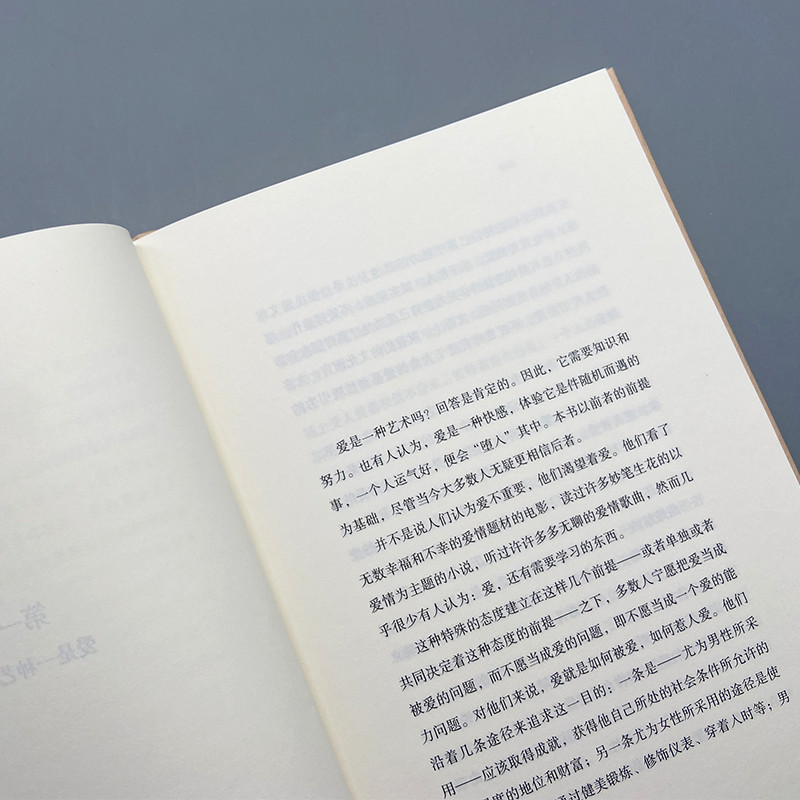 爱是一种艺术吗？回答是肯定的。因此，它需要知识和
努力。也有人认为，爱是一种快感，体验它是件随机而遇的
事，一个人运气好，便会“堕入”其中。本书以前者的前提
为基础，尽管当今大多数人无疑更相信后者。
并不是说人们认为爱不重要，他们渴望着爱。他们看了
无数幸福和不幸的爱情题材的电影，读过许多妙笔生花的以
爱情为主题的小说，听过许许多多无聊的爱情歌曲，然而几
乎很少有人认为：爱，还有需要学习的东西。
这种特殊的态度建立在这样几个前提——或者单独或者
共同决定着这种态度的前提——之下，多数人宁愿把爱当成
被爱的问题，而不愿当成爱的问题，即不愿当成一个爱的能
力问题。对他们来说，爱就是如何被爱，如何惹人爱。他们
沿着几条途径来追求这一目的：一条是——尤为男性所采
用——应该取得成就，获得他自己所处的社会条件所允许的
度的地位和财富；另一条尤为女性所采用的途径是使
通过健美锻炼、修饰仪表、穿着人时等；男
第一
爱是一种艺